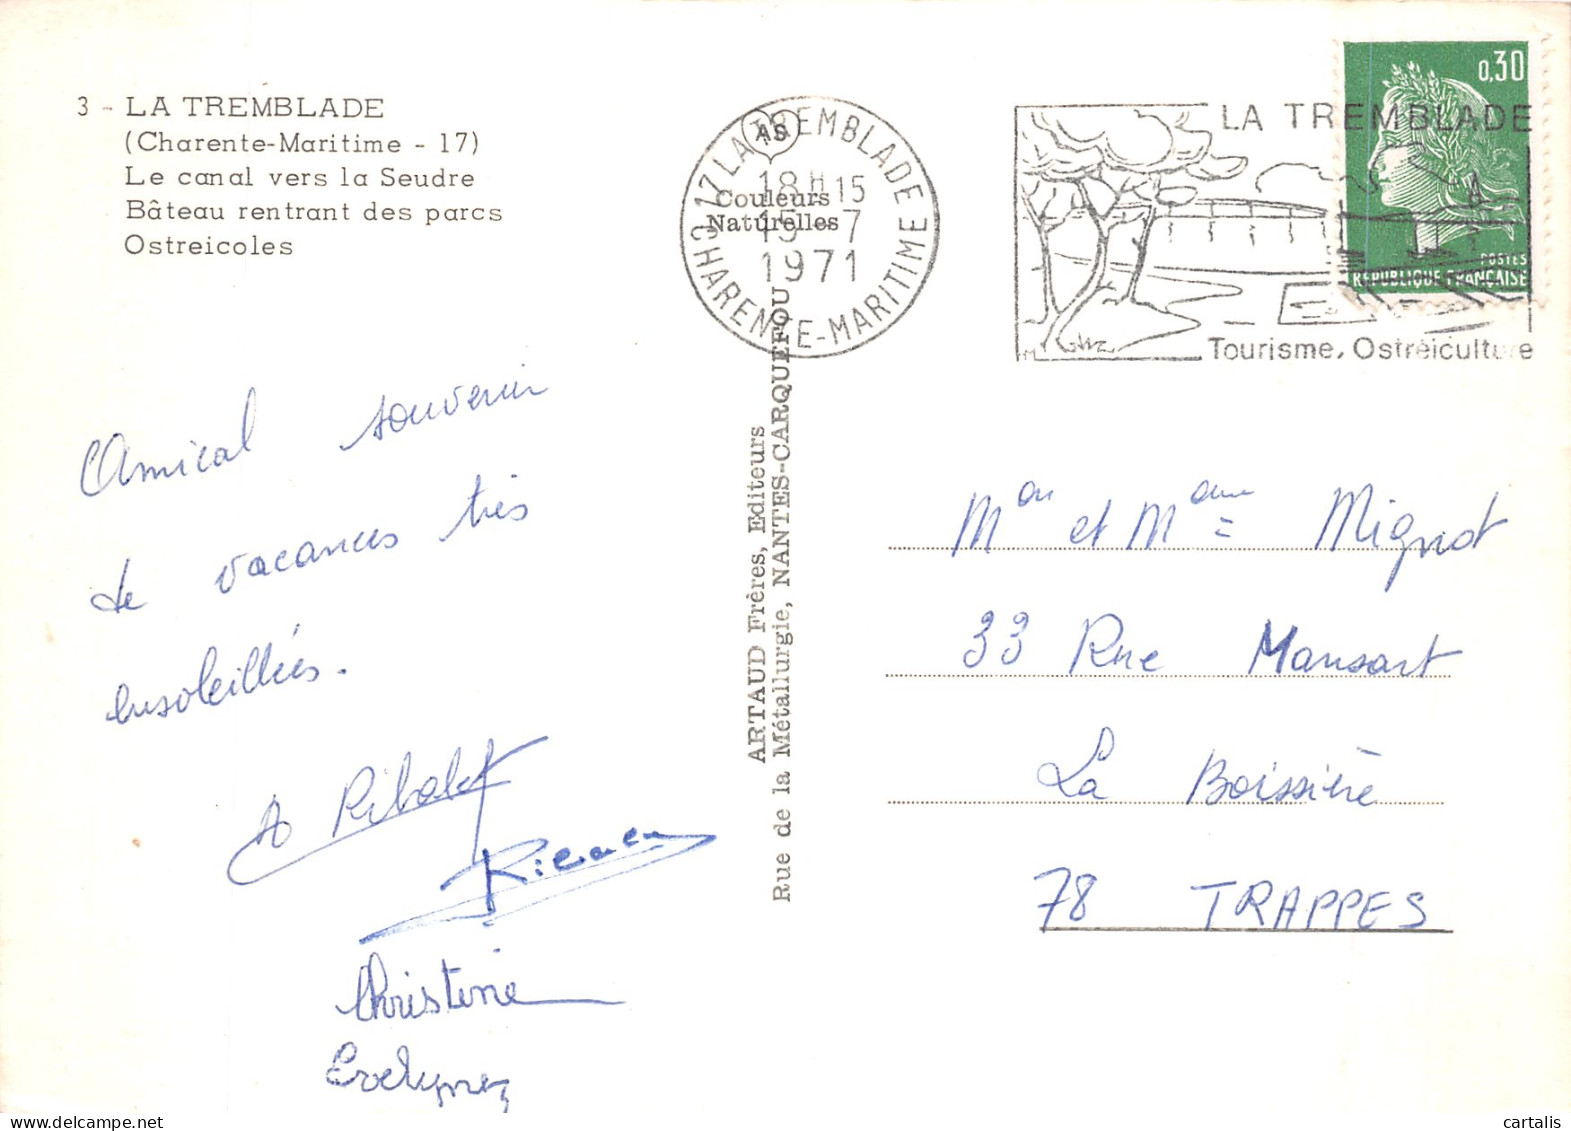 3 - LA TREMBLADE
(Charente-Maritime - 17)
Le canal vers la Seudre
Bâteau rentrant des parcs
Ostreicoles
AS
Couleurs
Naturelles
17 LA TREMBLADE
18H15
15-7
1971
CHARENTE-MARITIME
LA TREMBLADE
Tourisme, Ostréiculture
0,30
POSTES
REPUBLIQUE FRANÇAISE
ARTAUD Frères, Editeurs
Rue de la Métallurgie, NANTES-CARQUEFOU
Amical souvenir
de vacances très
ensoleillées.
A Ribalet
Christine
Evelyne
Mon et Mame Mignot
33 Rue Mansart
La Boissière
78 TRAPPES
cartalis
delcampe.net